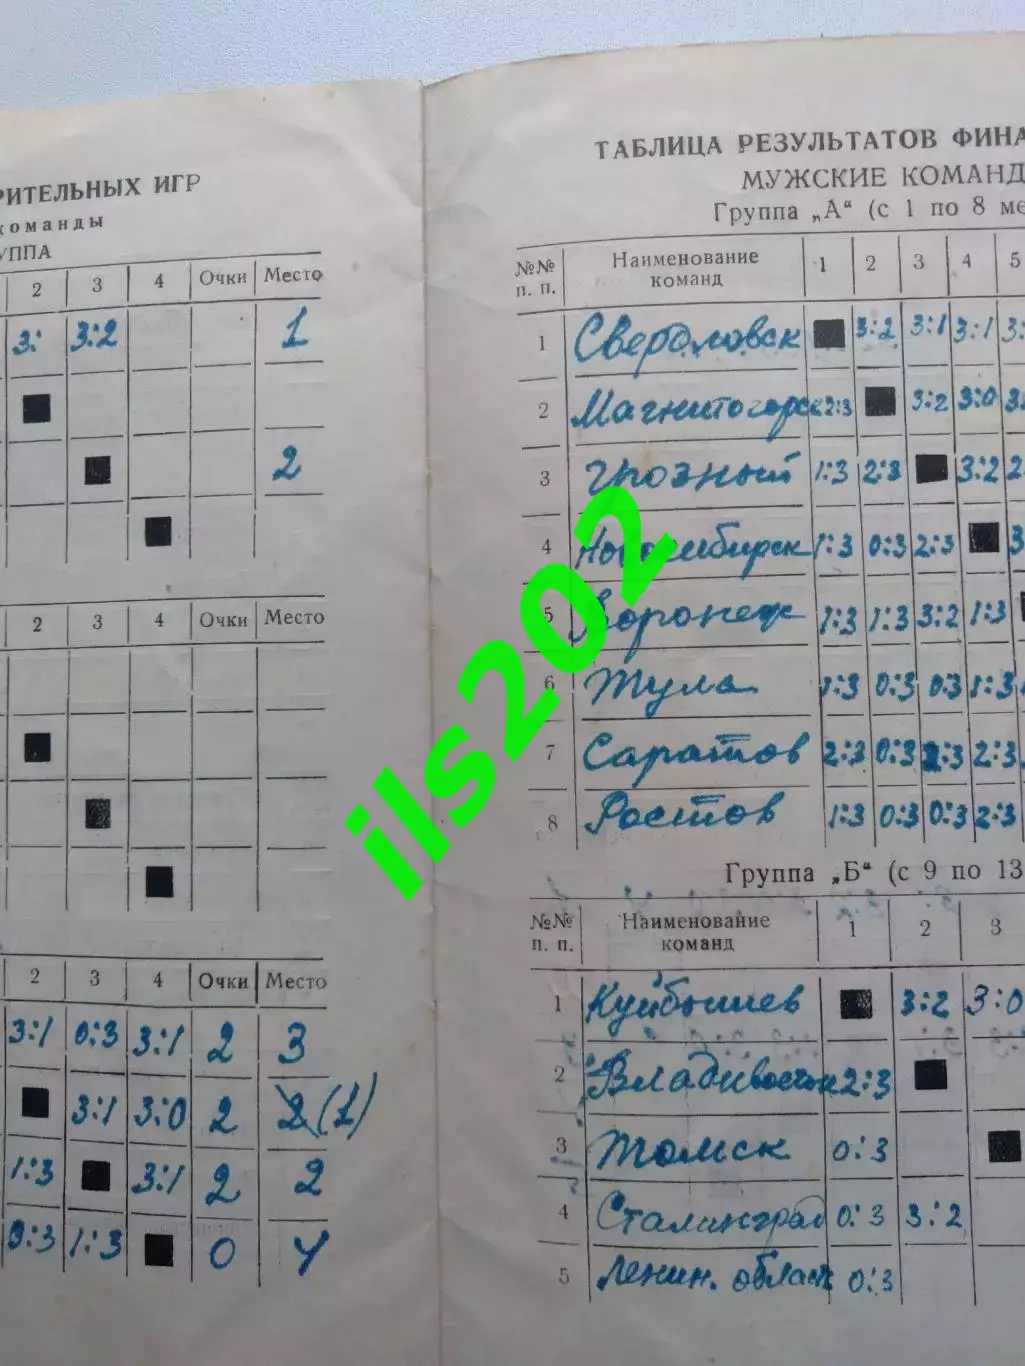 РИТЕЛЬНЫХ ИГР
команды
УППА
2 3 4 Очки Место
3: 3:2 1
2
2 3 4 Очки Место
2 3 4 Очки Место
3:1 0:3 3:1 2 3
3:1 3:0 2 2 (1)
1:3 3:1 2 2
0:3 1:3 0 4
ТАБЛИЦА РЕЗУЛЬТАТОВ ФИНА
МУЖСКИЕ КОМАНД
Группа „А“ (с 1 по 8 ме
№№ п. п. Наименование команд 1 2 3 4 5
1 Свердловск 3:2 3:1 3:1 3:
2 Магнитогорск 2:3 3:2 3:0 3:
3 Грозный 1:3 2:3 3:2 2:
4 Новосибирск 1:3 0:3 2:3 3
5 Воронеж 1:3 1:3 3:2 1:3
6 Тула 1:3 0:3 0:3 1:3
7 Саратов 2:3 0:3 2:3 2:3
8 Ростов 1:3 0:3 0:3 2:3
Группа „Б“ (с 9 по 13
№№ п. п. Наименование команд 1 2 3
1 Куйбышев 3:2 3:0
2 Владивосток 2:3
3 Томск 0:3
4 Сталинград 0:3 3:2
5 Ленин. област 0:3
ils202